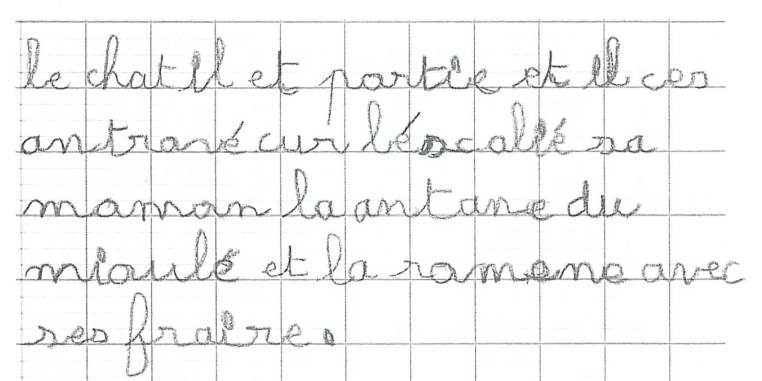 le chat il et partie et il ces
antravé cur léscalié sa
maman la antane du
mioulé et la ramene avec
ses fraire.